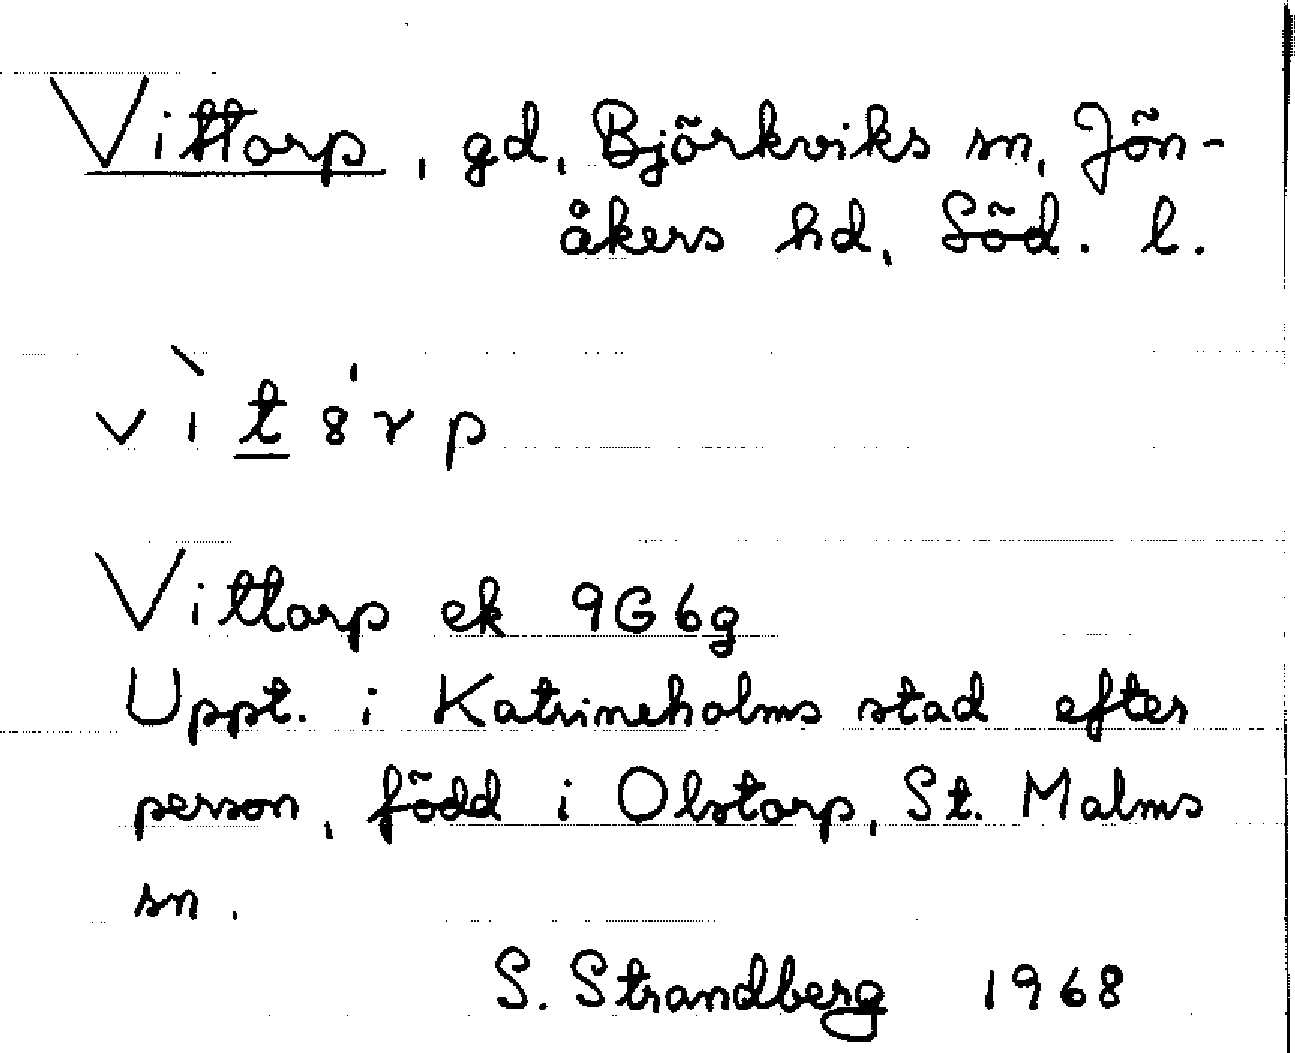 Vittorp, gd, Björkviks sn, Jön-
åkers hd, Söd. l.
vìt8́rp
Vittorp ek 9G6g
Uppt. i Katrineholms stad efter
person, född i Olstorp, St. Malms
sn.
S. Strandberg 1968